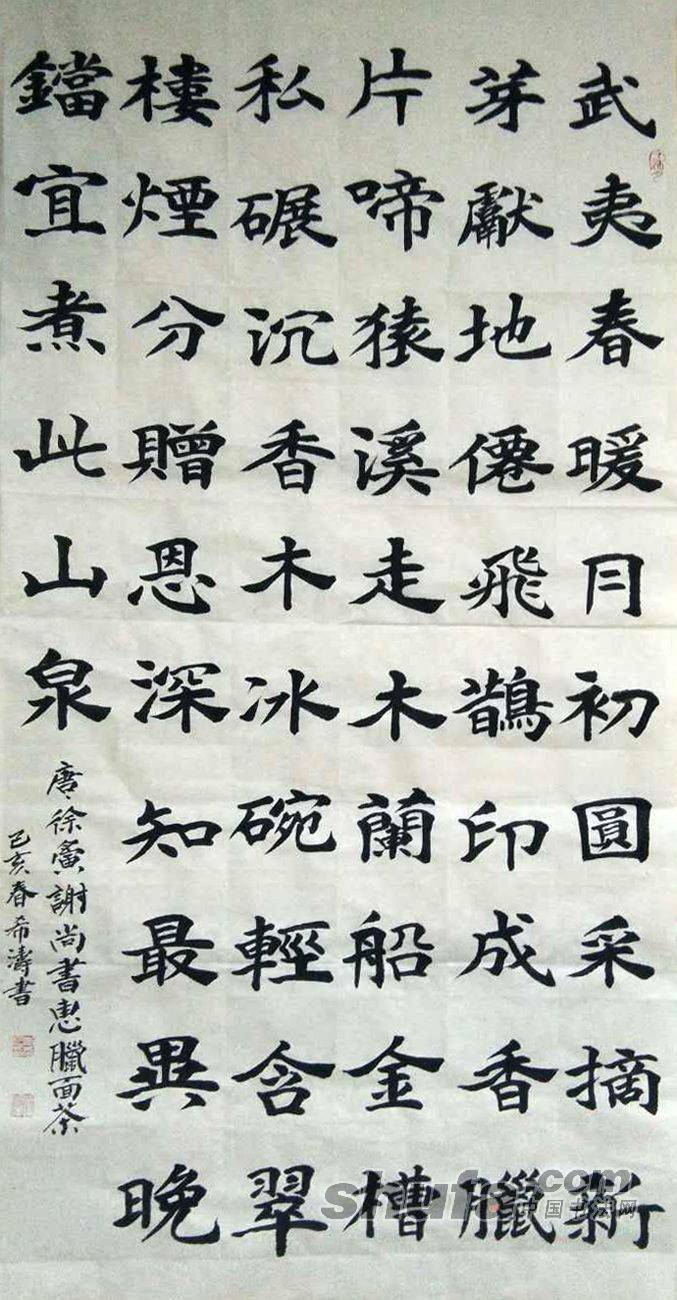 武夷春暖月初圓采摘新
芽獻地僊飛鵲印成香臘
片啼猿溪走木蘭船金槽
私碾沉香木冰碗輕含翠
樓煙分贈恩深知最異晚
鐺宜煮此山泉
唐徐夤謝尚書惠臘面茶
己亥春希濤書
shufa.com
中国书法网